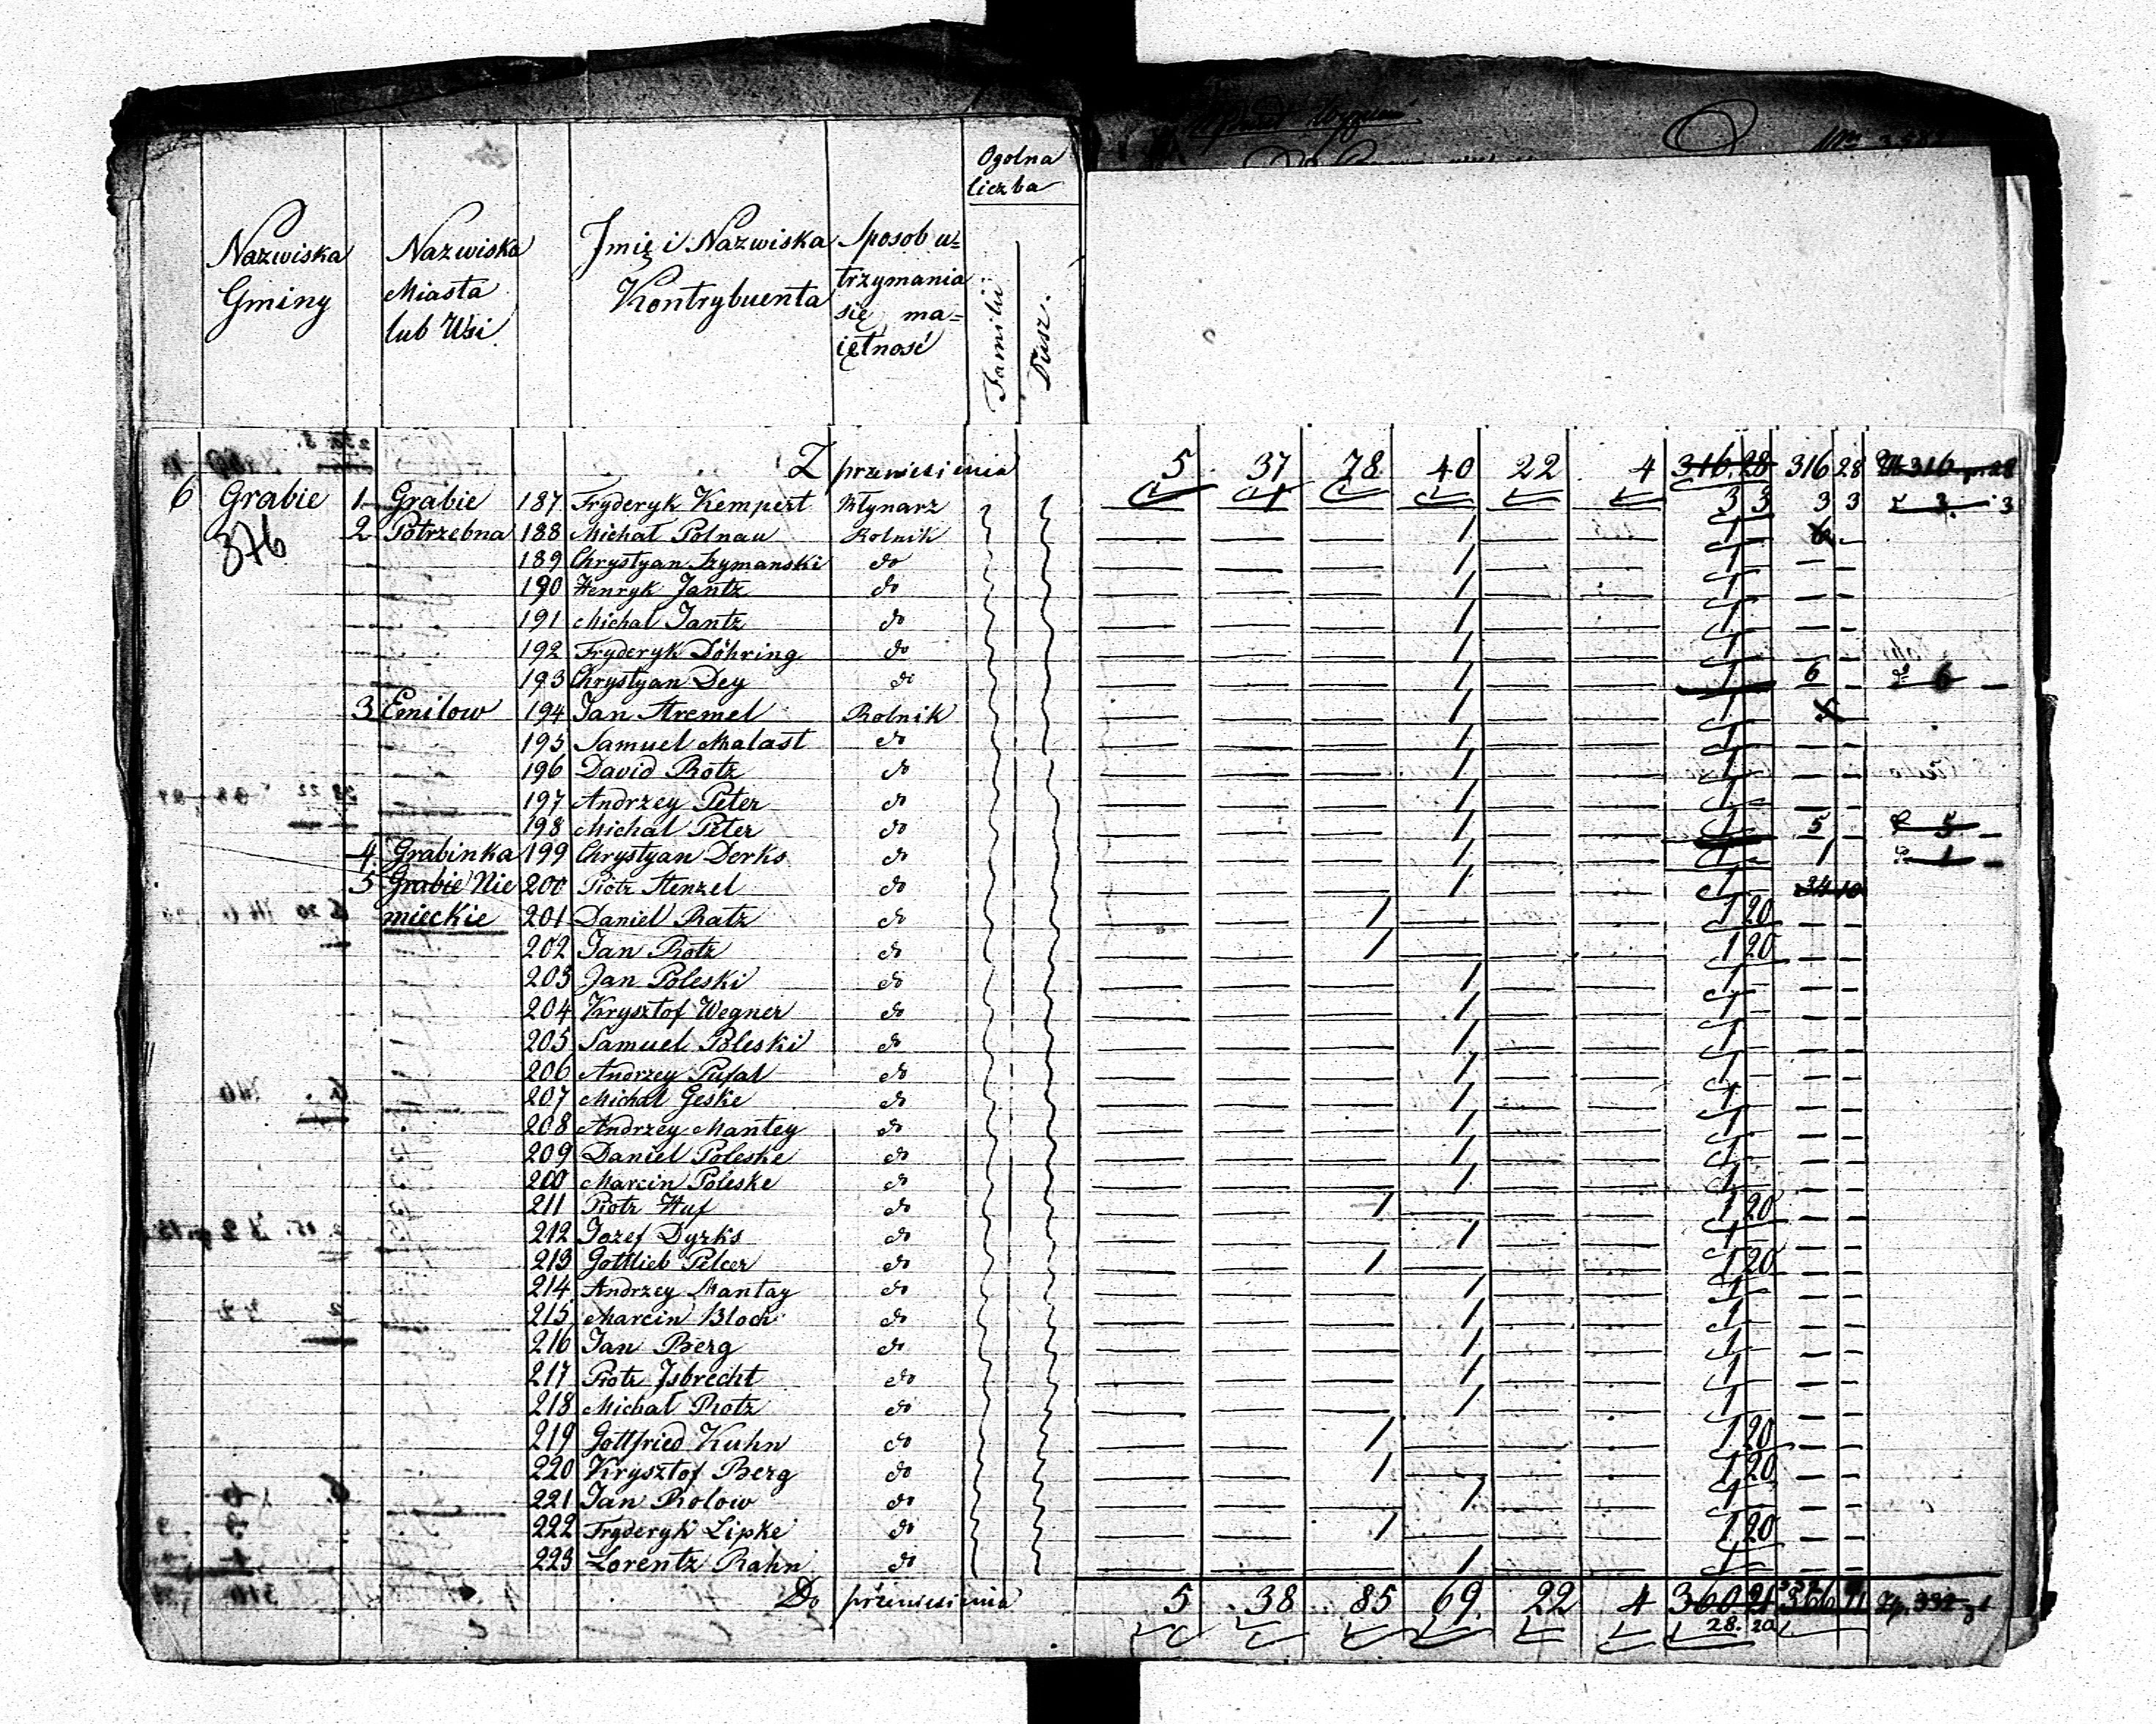 Nazwiska Gminy
Nazwiska Miasta lub Wsi
Jmię i Nazwiska Kontrybuenta
Sposob u= trzymania się ma= iętność
Ogolna liczba
Familii
Dusz.
Z przeniesienia 5 37 78 40 22 4 316 28 316 28
6 Grabie 1 Grabie 187 Fryderyk Kempert Młynarz — 1 — — — — 3 3 3 3 3 3
376 2 Potrzebna 188 Michał Polnau Rolnik — — — 1 — — 1 — 6 —
189 Chrystyan Szymanski do — — — 1 — — 1 — — —
190 Henryk Jantz do — — — 1 — — 1 — — —
191 Michał Jantz do — — — 1 — — 1 — — —
192 Fryderyk Döhring do — — — 1 — — 1 — — —
193 Chrystyan Dey do — — — 1 — — 1 — 6 — 6 —
3 Emilow 194 Jan Stremel Rolnik — — — 1 — — 1 — 5 —
195 Samuel Malast do — — — 1 — — 1 — — —
196 David Rotz do — — — 1 — — 1 — — —
197 Andrzey Peter do — — — 1 — — 1 — — —
198 Michał Peter do — — — 1 — — 1 — 5 — 5 —
4 Grabinka 199 Chrystyan Derks do — — — 1 — — 1 — 1 — 1 —
5 Grabie Nie 200 Piotr Stenzel do — — — 1 — — 1 — 24 10
mieckie 201 Daniel Ratz do — — 1 — — — 1 20 — —
202 Jan Rotz do — — 1 — — — 1 20 — —
203 Jan Poleski do — — — 1 — — 1 — — —
204 Krysztof Wegner do — — — 1 — — 1 — — —
205 Samuel Poleski do — — — 1 — — 1 — — —
206 Andrzey Pufal do — — — 1 — — 1 — — —
207 Michał Geske do — — — 1 — — 1 — — —
208 Andrzey Mantey do — — — 1 — — 1 — — —
209 Daniel Poleske do — — — 1 — — 1 — — —
200 Marcin Poleske do — — — 1 — — 1 — — —
211 Piotr Huf do — — 1 — — — 1 20 — —
212 Jozef Dyrks do — — — 1 — — 1 — — —
213 Gottlieb Pelcer do — — 1 — — — 1 20 — —
214 Andrzey Mantay do — — — 1 — — 1 — — —
215 Marcin Bloch do — — — 1 — — 1 — — —
216 Jan Berg do — — — 1 — — 1 — — —
217 Piotr Jsbrecht do — — — 1 — — 1 — — —
218 Michał Rotz do — — — 1 — — 1 — — —
219 Gottfried Kuhn do — — 1 — — — 1 20 — —
220 Krysztof Berg do — — 1 — — — 1 20 — —
221 Jan Rolow do — — — 1 — — 1 — — —
222 Fryderyk Lipke do — — 1 — — — 1 20 — —
223 Lorentz Rahn do — — — 1 — — 1 — — —
Do przeniesienia 5 38 85 69 22 4 360 21 366 11
28. 20